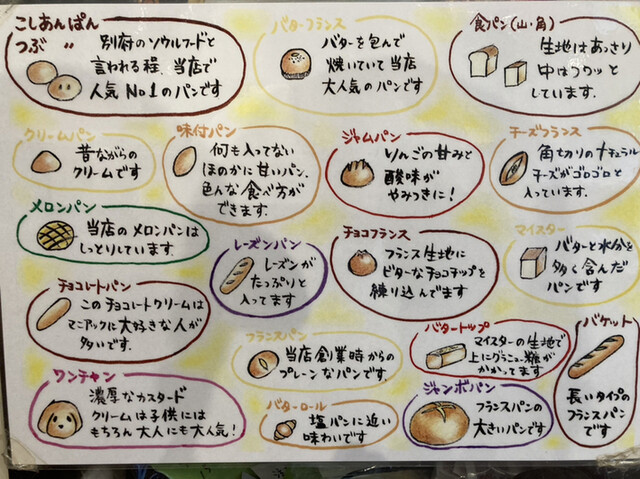 こしあんぱん
つぶ 〃
別府のソウルフードと
言われる程、当店で
人気No1のパンです
バターフランス
バターを包んで
焼いていて当店
大人気のパンです
食パン(山・角)
生地はあっさり
中はうわっと
しています.
クリームパン
昔ながらの
クリームです
味付パン
何も入ってない
ほのかに甘いパン.
色んな食べ方が
できます.
ジャムパン
りんごの甘みと
酸味が
やみつきに!
チーズフランス
角切りのナチュラル
チーズがゴロゴロと
入っています.
メロンパン
当店のメロンパンは
しっとりしています.
レーズンパン
レーズンが
たっぷりと
入ってます
チョコフランス
フランス生地に
ビターなチョコチップを
練り込んでます
マイスター
バターと水分を
多く含んだ
パンです
チョコレートパン
このチョコレートクリームは
マニアックに大好きな人が
多いです.
フランスパン
当店創業時からの
プレーンなパンです.
バタートップ
マイスターの生地で
上にグラニュー糖が
かかってます
バケット
長いタイプの
フランスパン
です
ワンチャン
濃厚なカスタード
クリームは子供には
もちろん大人にも大人気!
バターロール
塩パンに近い
味わいです
ジャンボパン
フランスパンの
大きいパンです